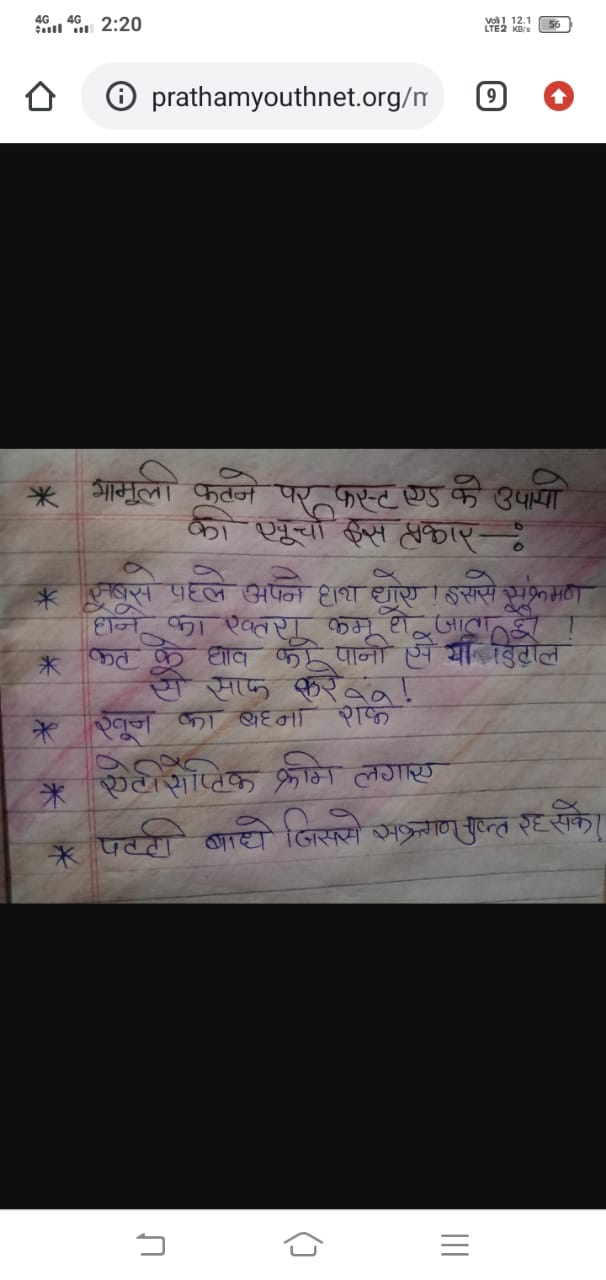 4G 4G 2:20 Vo)) 1 LTE2 12.1 KB/s 56
prathamyouthnet.org/m 9
* मामूली कतने पर फस्ट एड के उपायो
की सूची इस प्रकार -:
* सबसे पहले अपने हाथ धोए। इससे संक्रमण
होने का खतरा कम हो जाता है ।
* कत के घाव को पानी से या डिटोल
से साफ करे !
* खून का बहना रोके
* एंटीसेप्टिक क्रीम लगाए
* पटटी बाधे जिससे सक्रमण मुक्त रह सके।